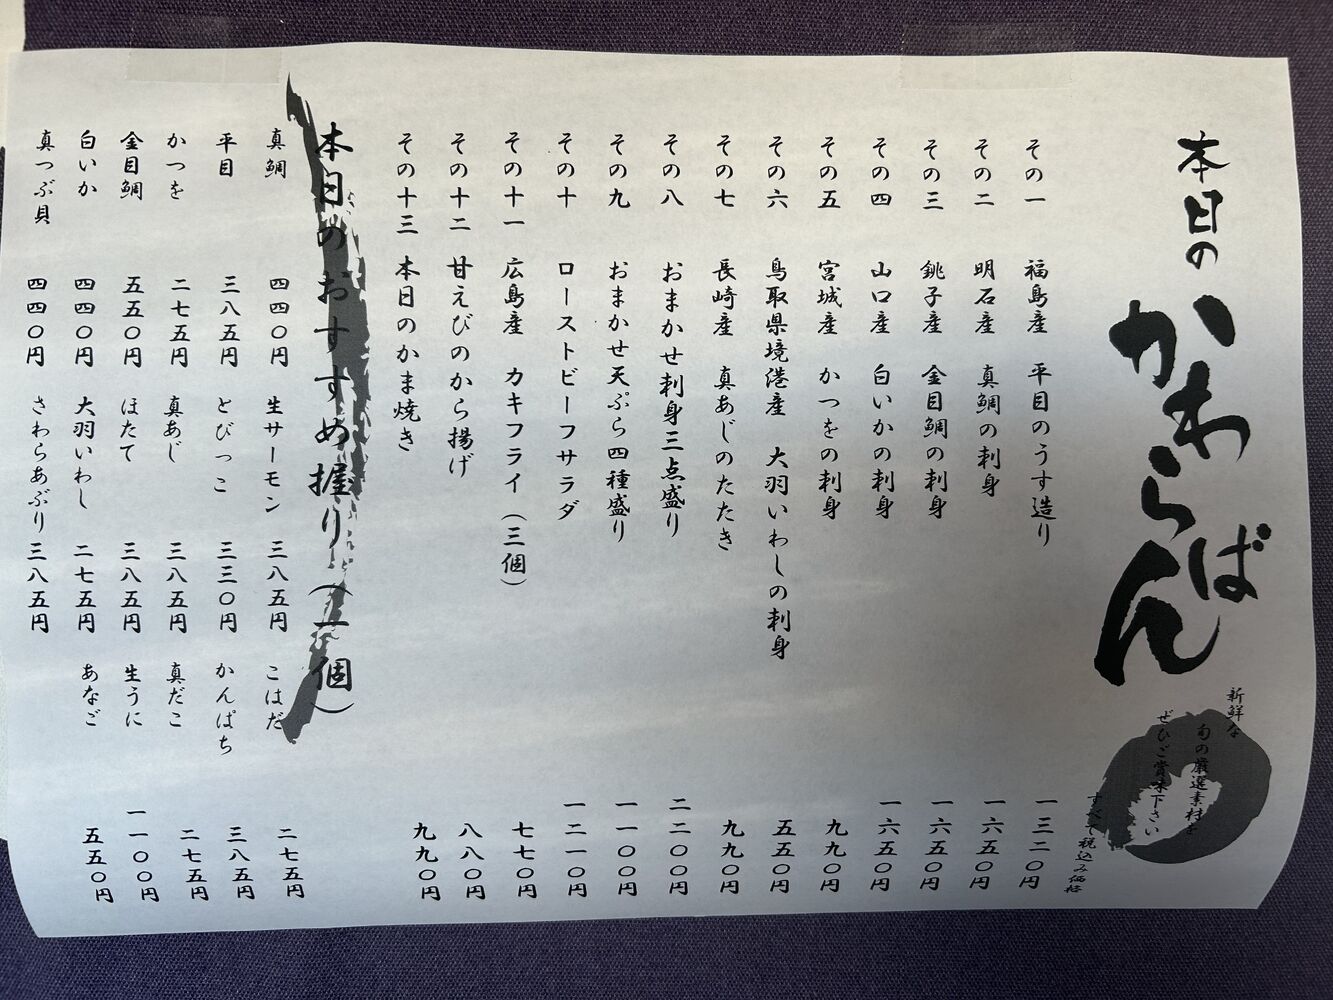 本日の
かわらばん
新鮮な
旬の厳選素材を
ぜひご賞味下さい
すべて税込み価格
その一 福島産 平目のうす造り 一三二〇円
その二 明石産 真鯛の刺身 一六五〇円
その三 銚子産 金目鯛の刺身 一六五〇円
その四 山口産 白いかの刺身 一六五〇円
その五 宮城産 かつをの刺身 九九〇円
その六 鳥取県境港産 大羽いわしの刺身 五五〇円
その七 長崎産 真あじのたたき 九九〇円
その八 おまかせ刺身三点盛り 二二〇〇円
その九 おまかせ天ぷら四種盛り 一一〇〇円
その十 ローストビーフサラダ 一二一〇円
その十一 広島産 カキフライ（三個） 七七〇円
その十二 甘えびのから揚げ 八八〇円
その十三 本日のかま焼き 九九〇円
本日のおすすめ握り（一個）
真鯛 四四〇円 生サーモン 三八五円 こはだ 二七五円
平目 三八五円 とびっこ 三三〇円 かんぱち 三八五円
かつを 二七五円 真あじ 三八五円 真だこ 二七五円
金目鯛 五五〇円 ほたて 三八五円 生うに 一一〇〇円
白いか 四四〇円 大羽いわし 二七五円 あなご 五五〇円
真つぶ貝 四四〇円 さわらあぶり 三八五円